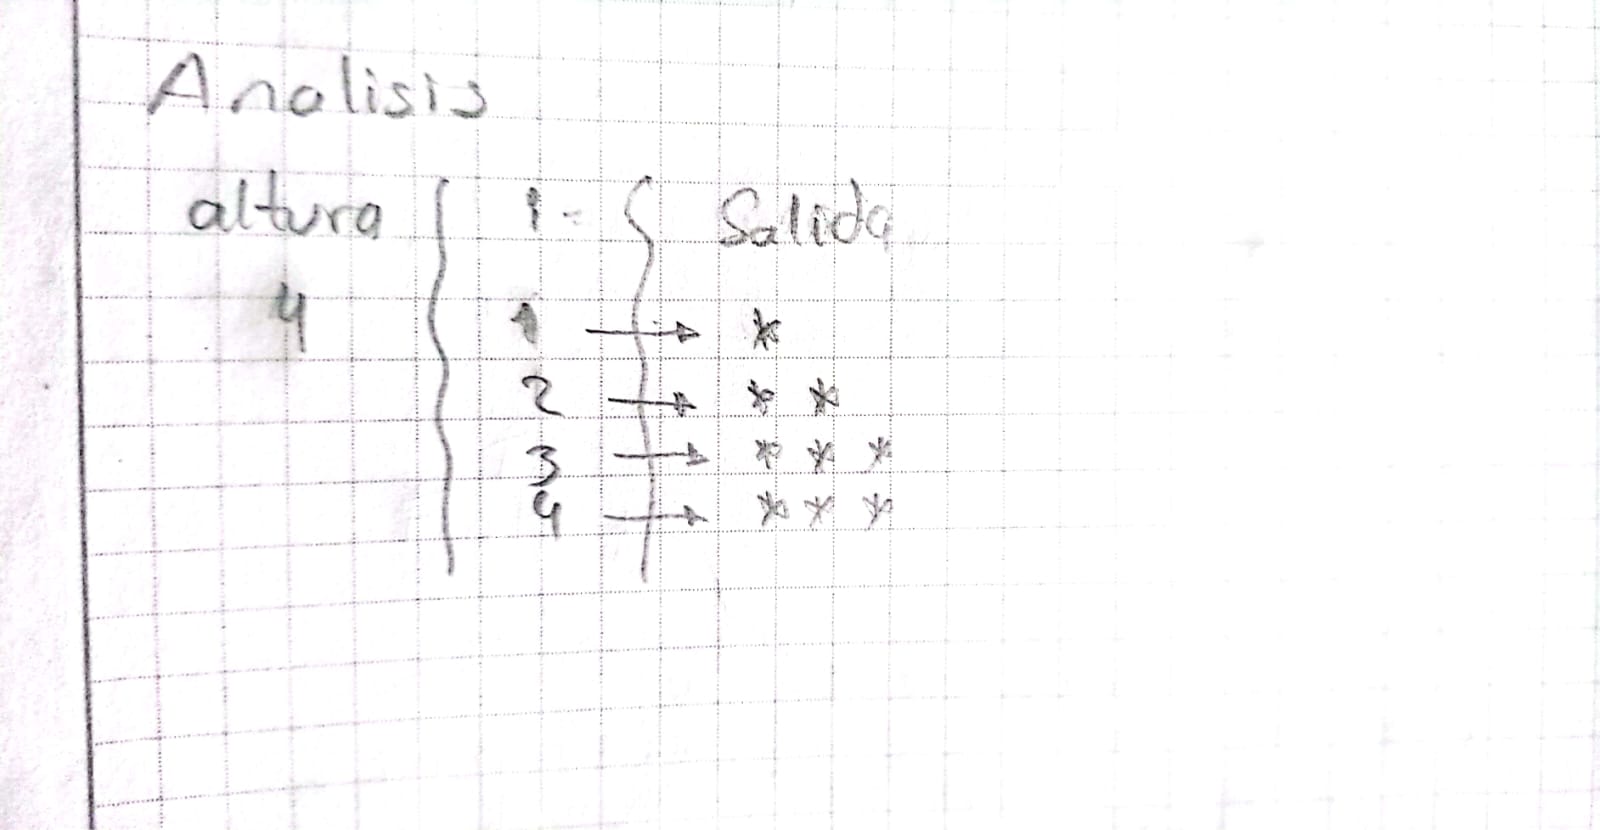 Analisis
altura { i = { Salida
4 1 → *
2 → * *
3 → * * *
4 → * * *